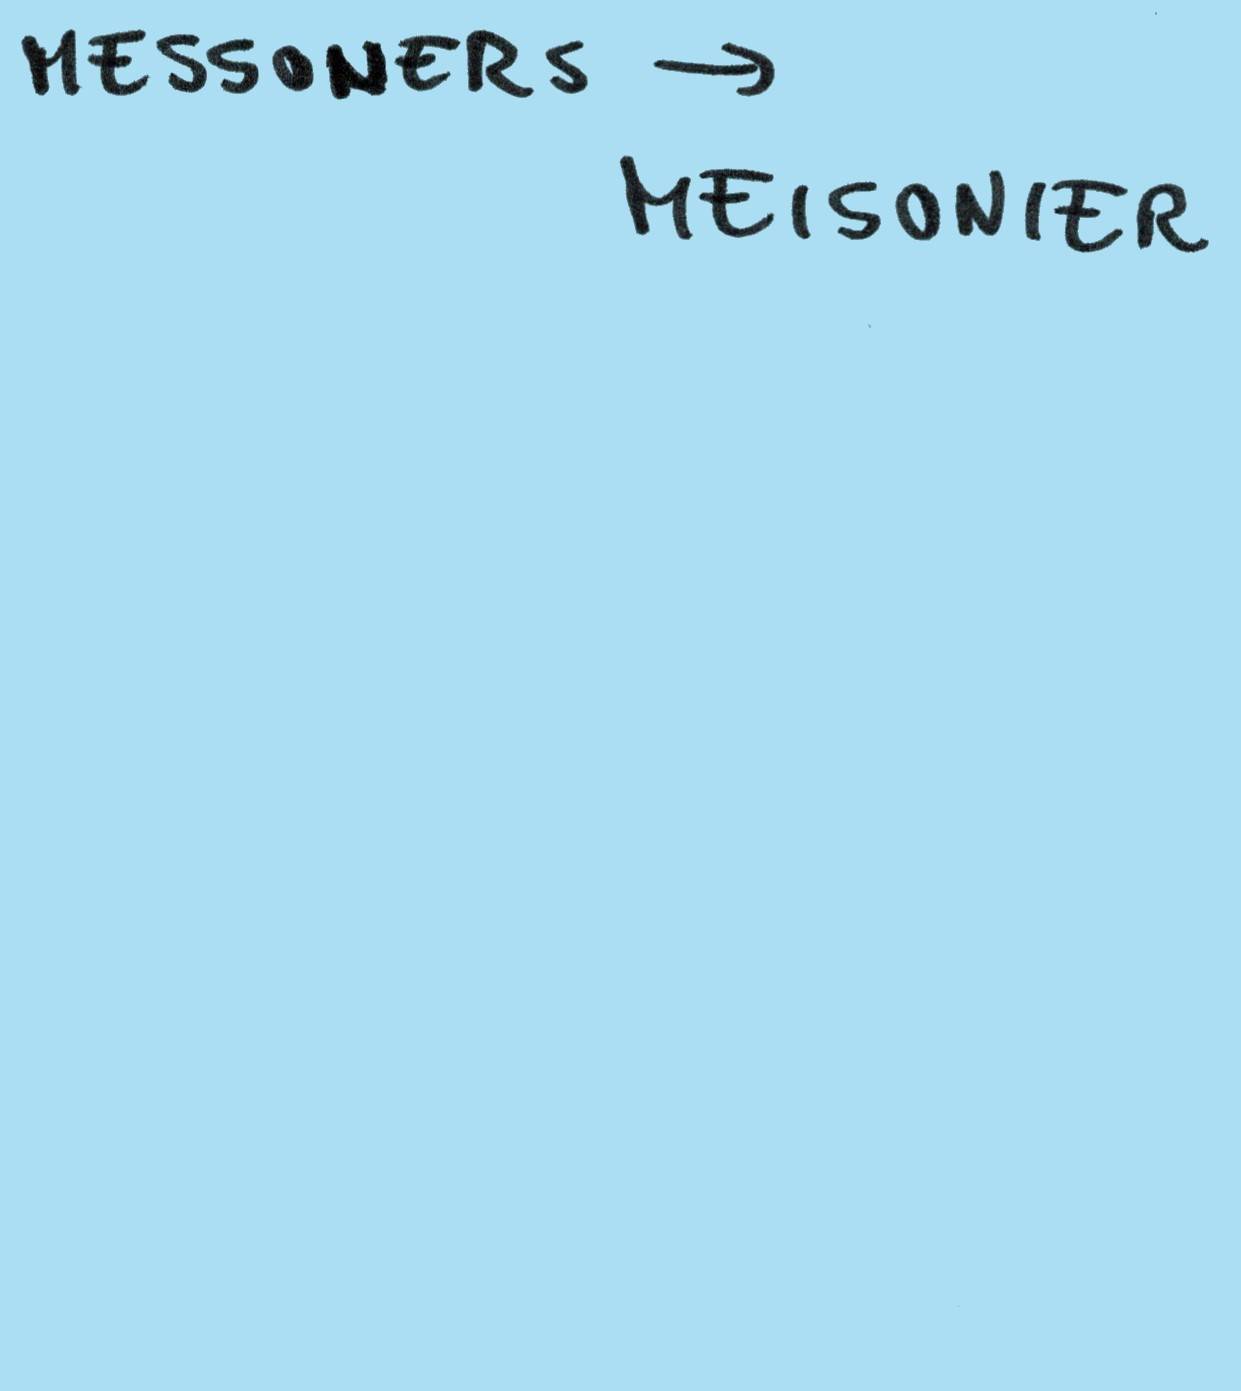 MESSONERS →
MEISONIER